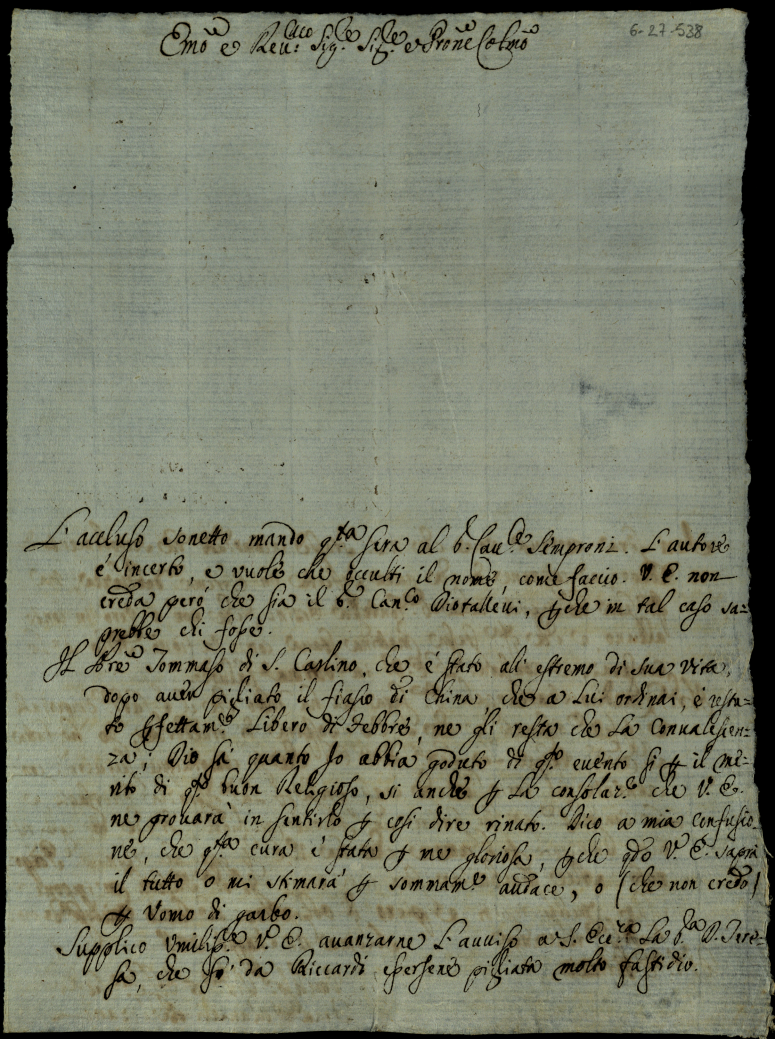 6-27-538
Emo͞ e Reu:mo Sig.re Sig.re e Prone Colmo͞
L'accluso sonetto mando q.ta sera al S. Cau.re Semproni. L'autore
é incerto, e vuole che occulti il nome, come faccio. V. E. non
creda peró che sia il S. Can.co Diotalleui, ꝑche in tal caso sa-
prebbe chi fosse.
Il Pre Tommaso di S. Carlino, che é stato all' estremo di sua vita,
dopo auer pigliato il fiasco di China, che a Lui ordinai, é resta-
to ꝑfettam.te Libero di Febbre, ne gli resta che La Conualescen-
za; Dio sá quanto Io abbia goduto di q.to euento si ꝑ il me-
rito di q.to buon Religioso, si anche ꝑ La consolaz.ne che V. E.
ne prouará in sentirlo ꝑ cosi dire rinato. Dico a mia confusio-
ne, che q.ta cura é stata ꝑ me gloriosa, ꝑche qdo V. E. saprá
il tutto o mi stimará ꝑ sommam.te audace, o (che non credo)
ꝑ Vomo di garbo.
Supplico Vmiliss.te V. E. auanzarne L'auuiso a S. Ecc.za La S.ra D. Tere-
sa, che só da Riccardi essersene pigliata molto fastidio.